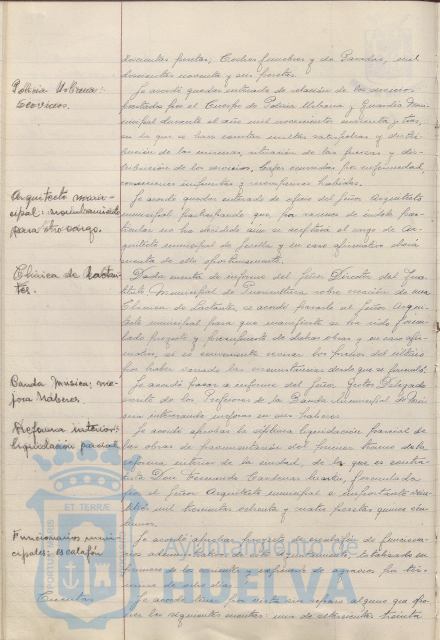 doscientas pesetas; Coches funebres y de Paradas, mil
doscientas noventa y seis pesetas.
Policia Urbana:
Servicios.
Se acordó quedar enterado de relación de los servicios
prestados por el Cuerpo de Policia Urbana y Guardia Muni-
cipal durante el año mil novecientos cuarenta y tres,
en la que se hace constar multas satisfechas y distri-
bución de las mismas, situación de las fuerzas y dis-
tribución de los servicios, bajas causadas por enfermedad,
correcciones impuestas y recompensas habidas.
Arquitecto muni-
cipal: nombramiento
para otro cargo.
Se acordó quedar enterado de oficio del Señor Arquitecto
municipal participando que, por razones de indole par-
ticular no ha decidido aun si aceptará el cargo de Ar-
quitecto municipal de Sevilla y en caso afirmativo daría
cuenta de ello oportunamente.
Clinica de Lactan-
tes.
Dada cuenta de informe del Señor Director del Ins-
tituto Municipal de Puericultura sobre creación de una
Clinica de Lactantes, se acordó pasarlo al Señor Arqui-
tecto municipal para que manifieste si ha sido formu-
lado proyecto y presupuesto de dichas obras y en caso afir-
mativo, si es conveniente revisar los precios del mismo
por haber variado las circunstancias desde que se formuló.
Banda Musica: me-
jora haberes.
Se acordó pasar a informe del Señor Gestor Delegado
escrito de los Profesores de la Banda Municipal de Mú-
sica interesando mejoras en sus haberes.
Reforma interior:
liquidación parcial.
Se acordó aprobar la séptima liquidación parcial de
las obras de pavimentación del primer tramo de la
reforma interior de la ciudad, de la que es contra-
tista Don Fernando Cardenas, formulada
por el Señor Arquitecto municipal e importante
mil trescientas ochenta y cuatro pesetas quince cén-
timos.
Funcionarios muni-
cipales: escalafón
Se acordó aprobar proyecto de escalafón de funciona-
rios administrativos de este Ayuntamiento, elaborado en
primero de los corrientes y exponerlo de agravios por tér-
mino de ocho dias.
Cuentas
Se acordó librar por visto sin reparo alguno que opo-
ner las siguientes cuentas: una de setecientas treinta
ET TERRÆ
PORTUS MARIS
Ayuntamiento de
HUELVA